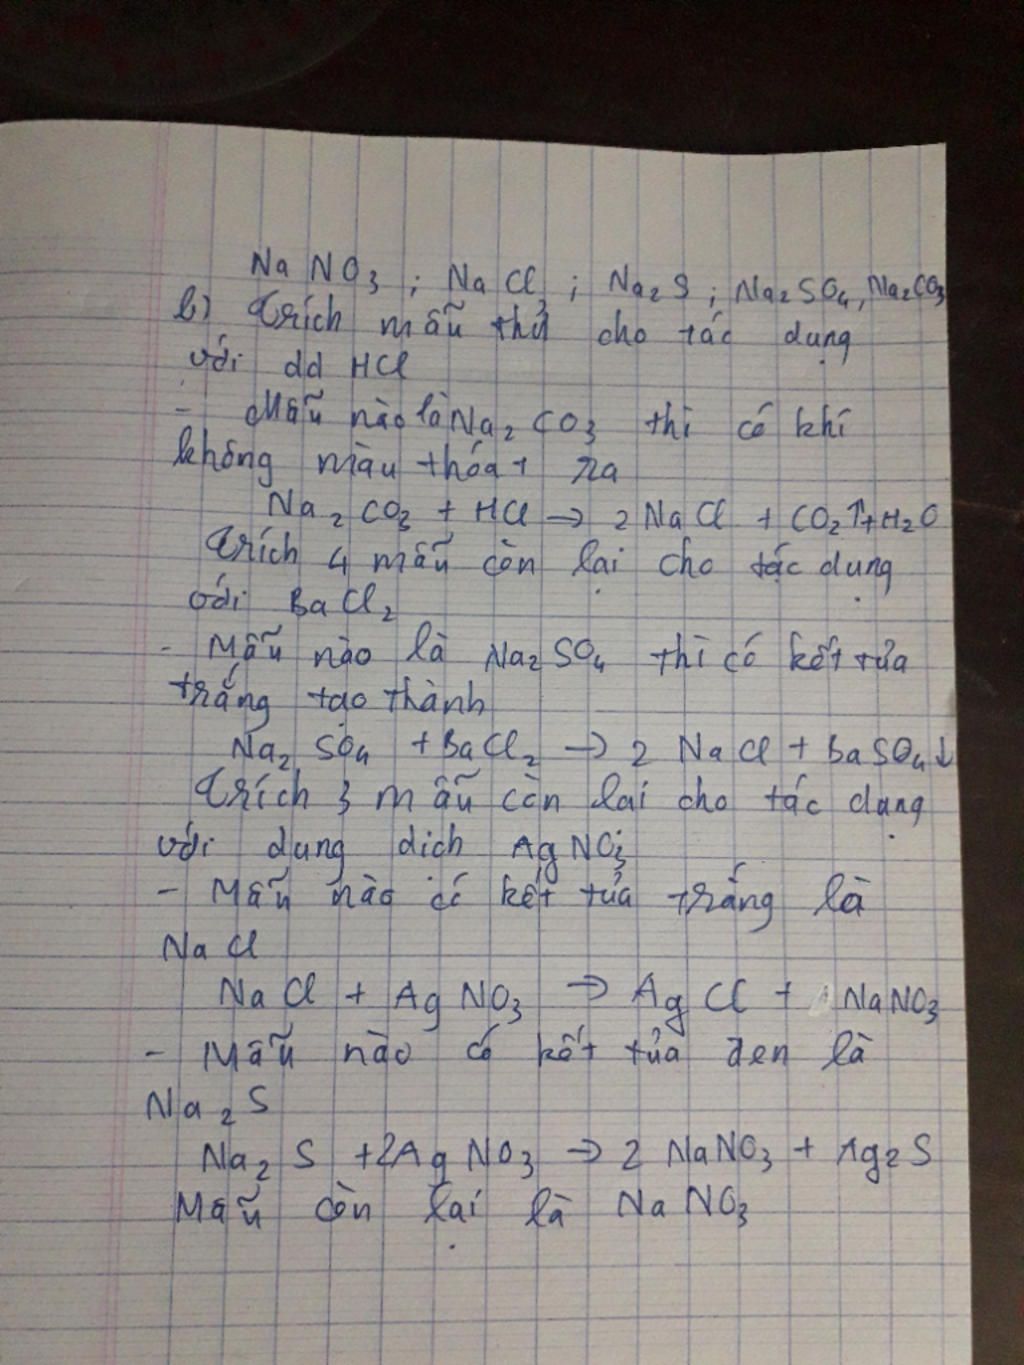 NaNO3 ; NaCl ; Na2S ; Na2SO4, Na2CO3
b) Trích mẫu thử cho tác dụng
với dd HCl
- Mẫu nào là Na2CO3 thì có khí
không màu thóat ra
Na2CO3 + HCl → 2NaCl + CO2↑ + H2O
Trích 4 mẫu còn lại cho tác dụng
với BaCl2
- Mẫu nào là Na2SO4 thì có kết tủa
trắng tạo thành
Na2SO4 + BaCl2 → 2 NaCl + BaSO4↓
Trích 3 mẫu còn lai cho tác dụng
với dung dich AgNO3
- Mẫu nào có kết tủa trắng là
NaCl
NaCl + AgNO3 → AgCl + NaNO3
- Mẫu nào có kết tủa đen là
Na2S
Na2S + 2AgNO3 → 2 NaNO3 + Ag2S
Mẫu còn lại là NaNO3